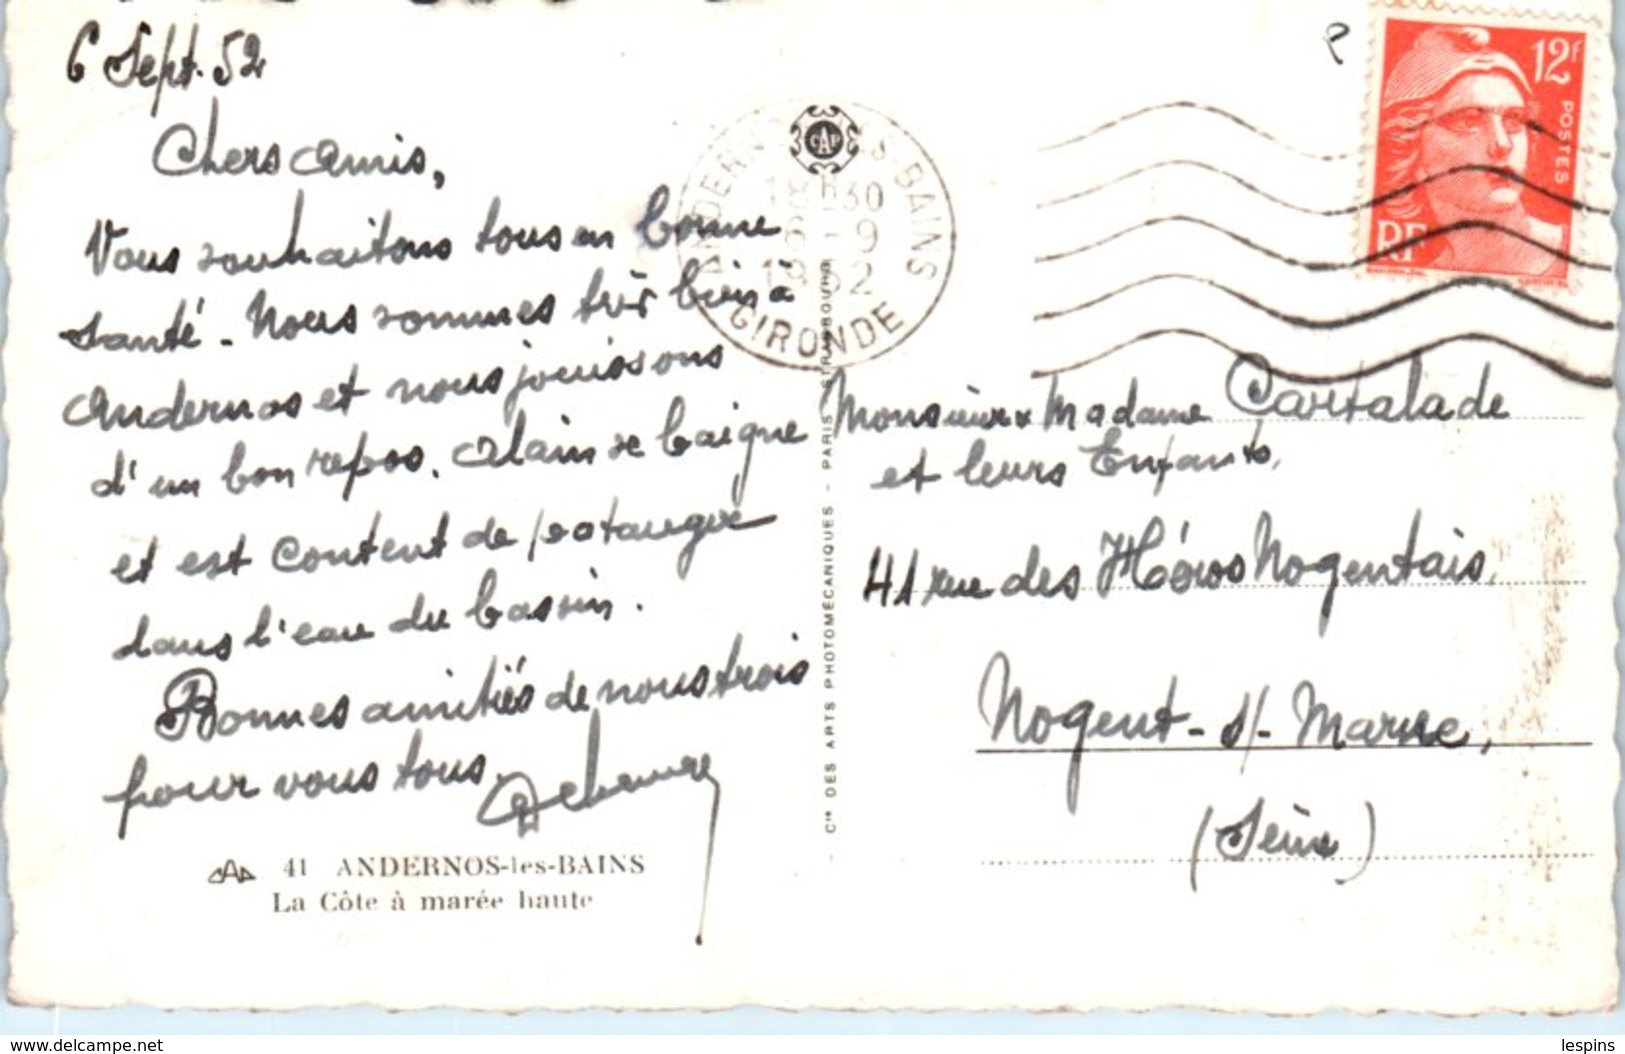 6 Sept. 52
Chers amis,
Vous souhaitons tous en bonne
santé - Nous sommes très bien à
Andernos et nous jouissons
d'un bon repos. Alain se baigne
et est content de patauger
dans l'eau du bassin.
Bonnes amitiés de nous trois
pour vous tous.
41 ANDERNOS-les-BAINS
La Côte à marée haute
CAP
ANDERNOS-LES-BAINS
18H30
6-9
1952
GIRONDE
Cie DES ARTS PHOTOMÉCANIQUES - PARIS - STRASBOURG
12F
POSTES
RF
Monsieur & Madame Cartalade
et leurs Enfants,
41 rue des Héros Nogentais,
Nogent-s/-Marne,
(Seine)
www.delcampe.net
lespins